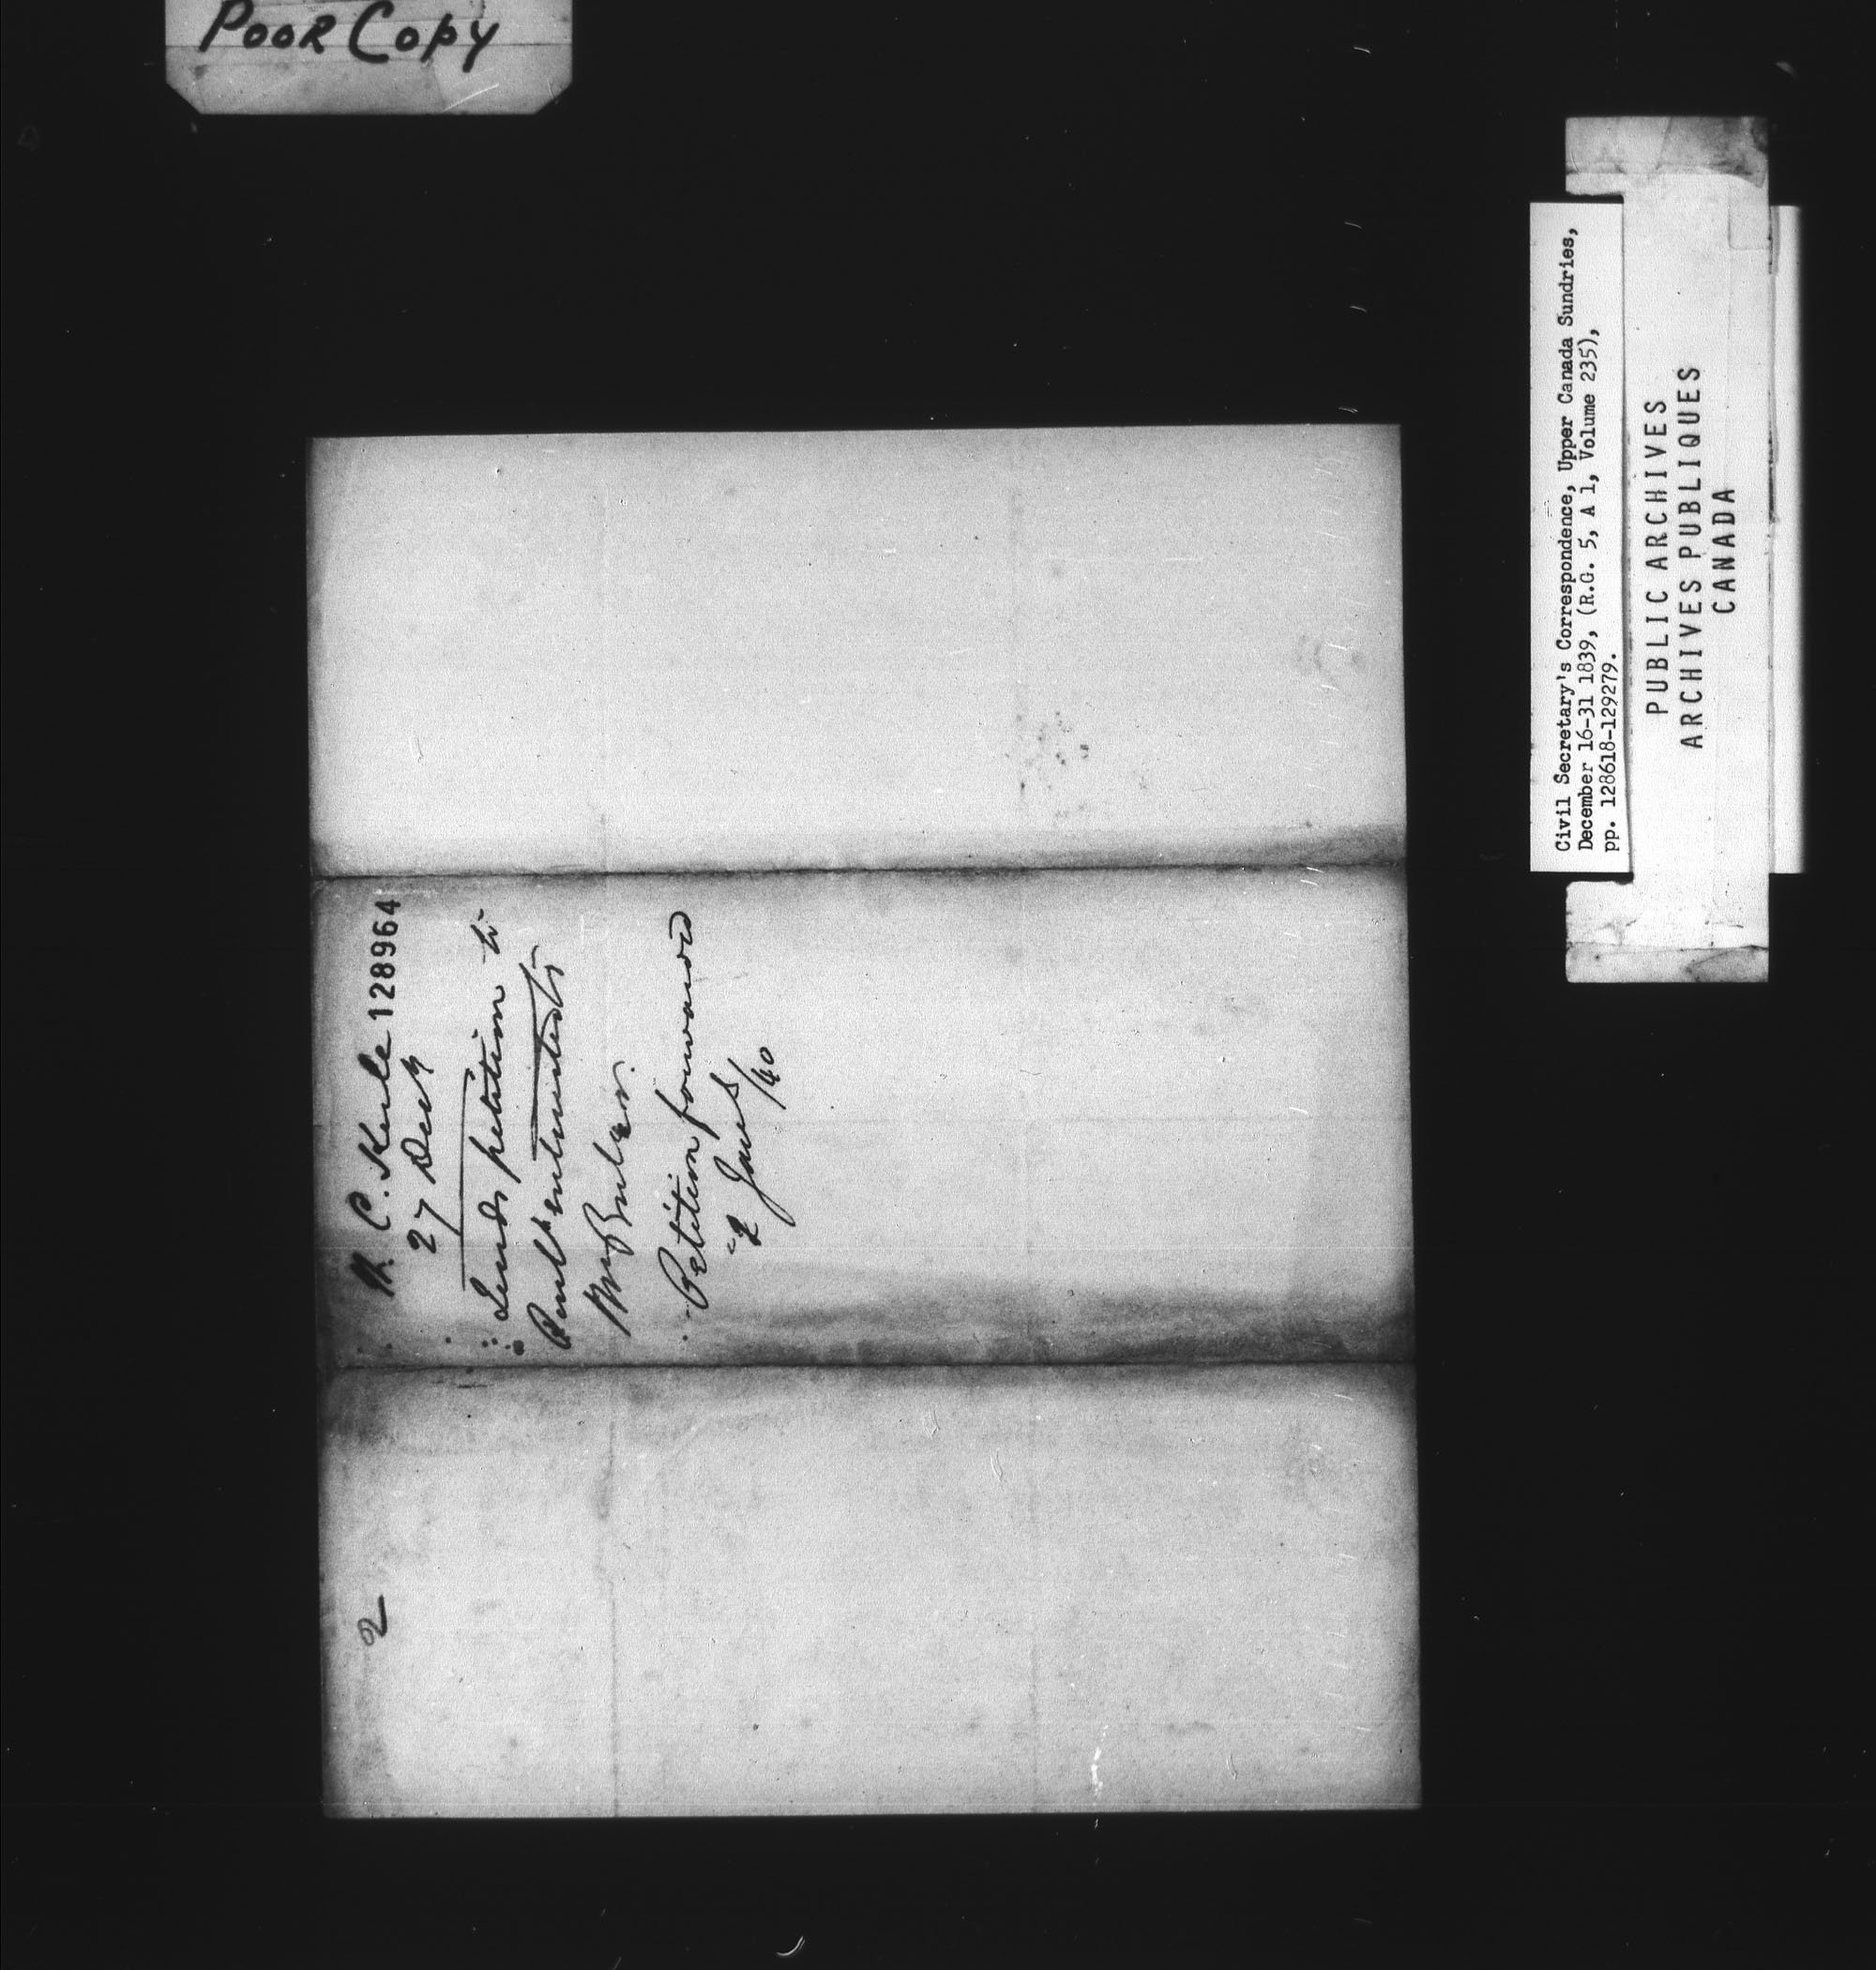 Poor Copy
Civil Secretary's Correspondence, Upper Canada Sundries,
December 16-31 1839, (R.G. 5, A 1, Volume 235),
pp. 128618-129279.
PUBLIC ARCHIVES
ARCHIVES PUBLIQUES
CANADA
128964
W. C. Keele
27 Decr
Sends petition to
Petition forwarded
2 Jany /40
2